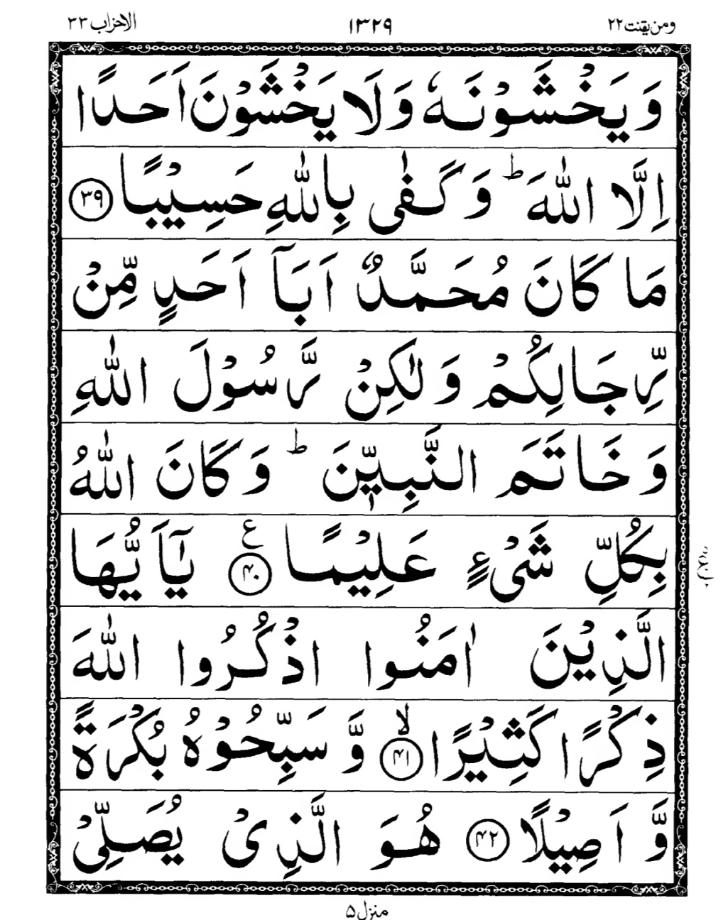 ومن یقنت ۲۲
۱۳۲۹
الاحزاب ۳۳
وَيَخْشَوْنَهٗ وَلَا يَخْشَوْنَ اَحَدًا
اِلَّا اللّٰهَ ؕ وَكَفٰى بِاللّٰهِ حَسِيْبًا ﴿۳۹﴾
مَا كَانَ مُحَمَّدٌ اَبَآ اَحَدٍ مِّنْ
رِّجَالِكُمْ وَلٰكِنْ رَّسُوْلَ اللّٰهِ
وَخَاتَمَ النَّبِيّٖنَ ؕ وَكَانَ اللّٰهُ
بِكُلِّ شَىْءٍ عَلِيْمًا ﴿۴۰﴾ ع يٰٓاَيُّهَا
الَّذِيْنَ اٰمَنُوا اذْكُرُوا اللّٰهَ
ذِكْرًا كَثِيْرًا ﴿۴۱﴾ ۙ وَّسَبِّحُوْهُ بُكْرَةً
وَّاَصِيْلًا ﴿۴۲﴾ هُوَ الَّذِىْ يُصَلِّىْ
منزل ۵